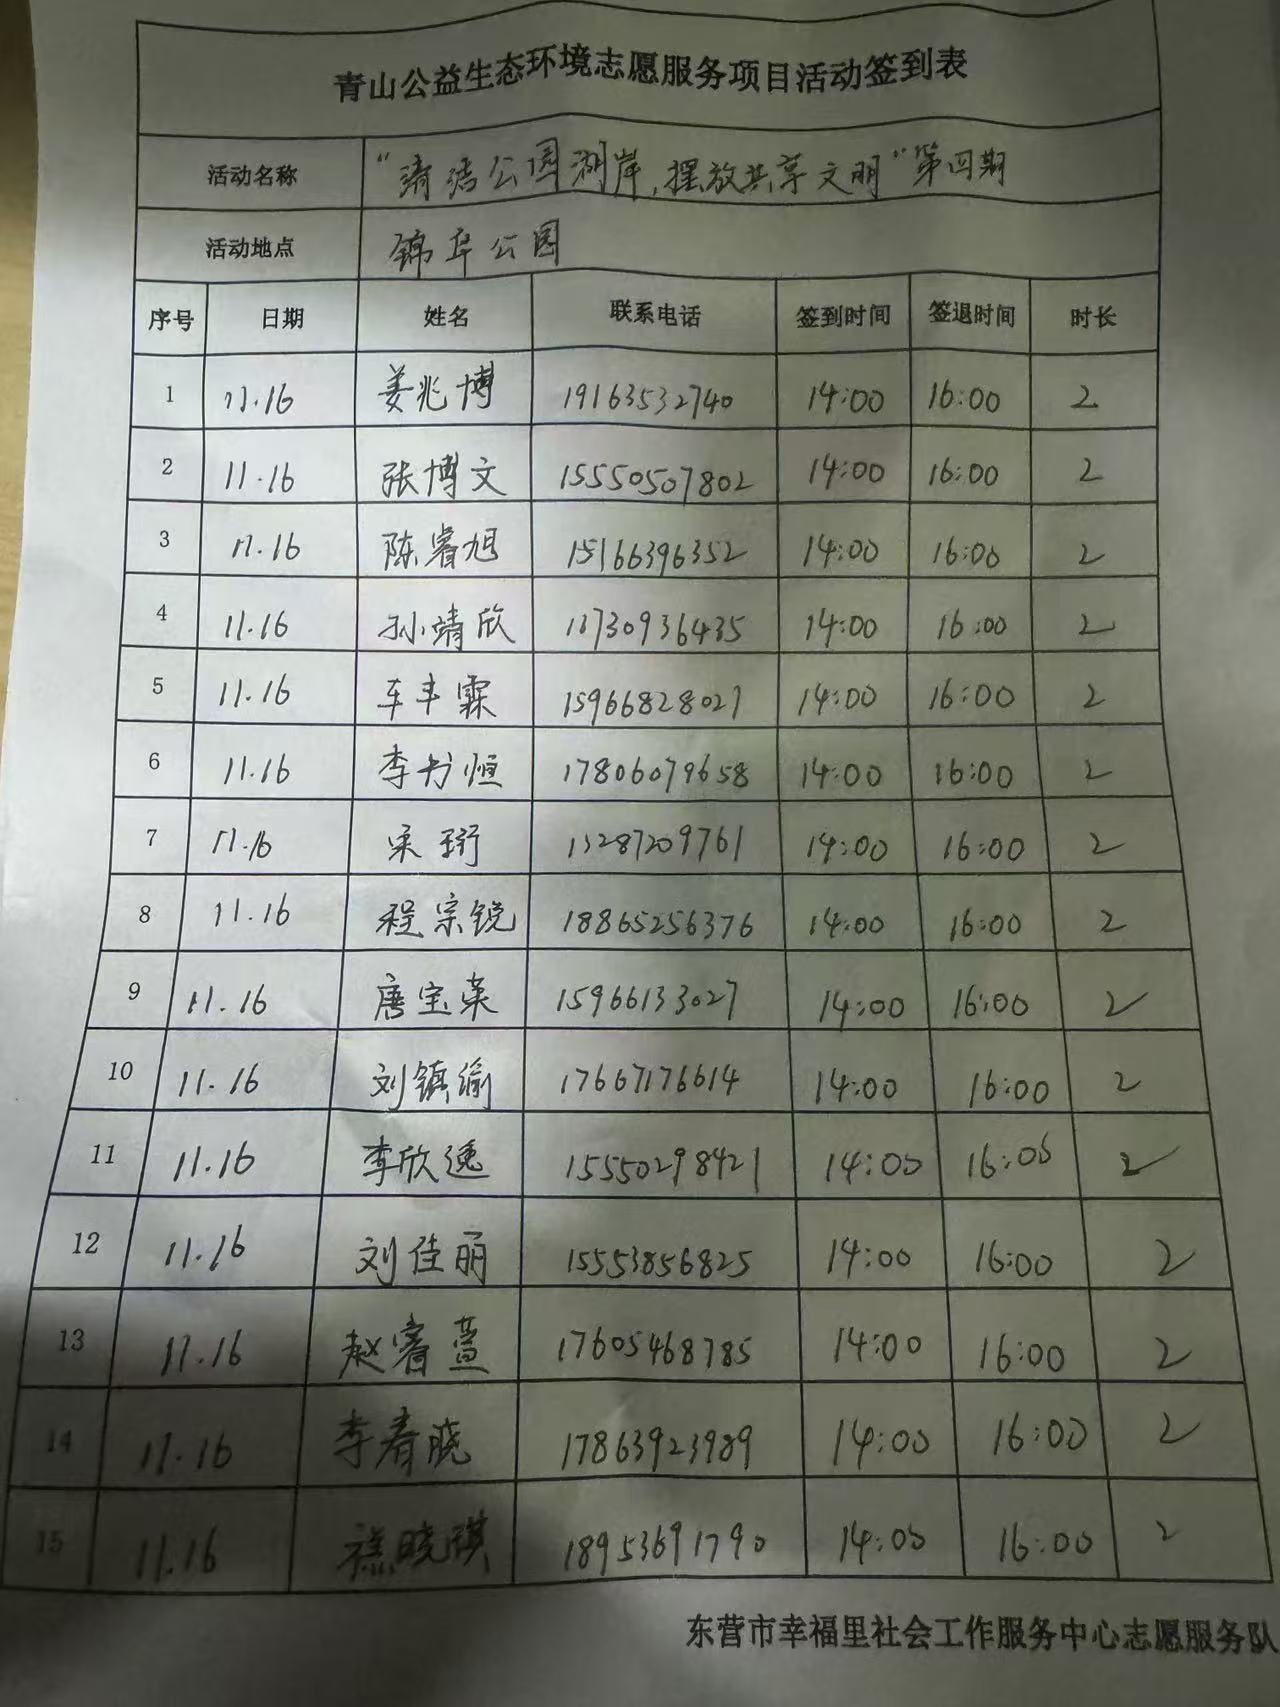 青山公益生态环境志愿服务项目活动签到表
活动名称 “清洁公园湖岸,摆放共享文明”第四期
活动地点 锦华公园
序号 日期 姓名 联系电话 签到时间 签退时间 时长
1 11.16 姜兆博 19163532740 14:00 16:00 2
2 11.16 张博文 15550507802 14:00 16:00 2
3 11.16 陈睿旭 15166396352 14:00 16:00 2
4 11.16 孙靖欣 13730936435 14:00 16:00 2
5 11.16 车丰霖 15966828027 14:00 16:00 2
6 11.16 李书恒 17806079658 14:00 16:00 2
7 11.16 宋珩 13287209761 14:00 16:00 2
8 11.16 程宗锐 18865256376 14:00 16:00 2
9 11.16 唐宝荣 15966133027 14:00 16:00 2
10 11.16 刘镇瑜 17667176614 14:00 16:00 2
11 11.16 李欣逸 15550298421 14:00 16:00 2
12 11.16 刘佳丽 15553856825 14:00 16:00 2
13 11.16 赵睿萱 17605468785 14:00 16:00 2
14 11.16 李春晓 17863923989 14:00 16:00 2
15 11.16 晓琪 18953691790 14:00 16:00 2
东营市幸福里社会工作服务中心志愿服务队